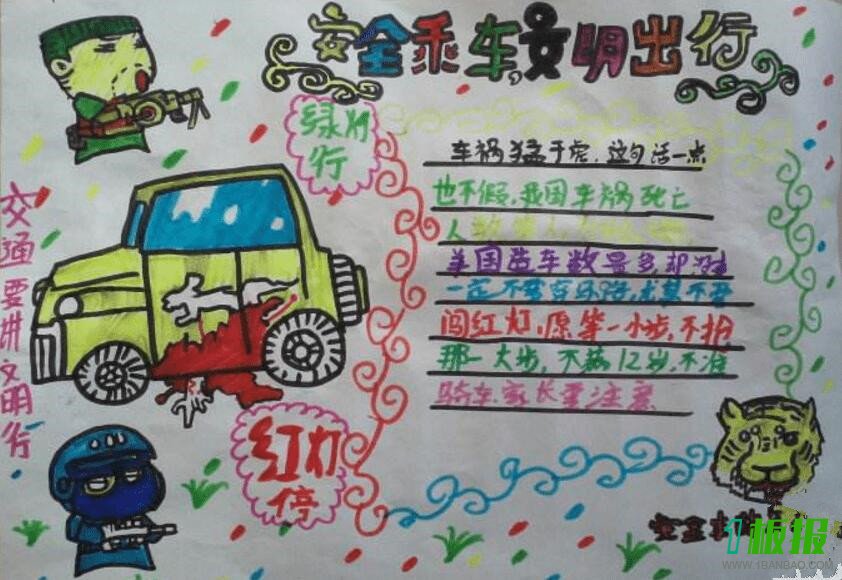 安全乘车,文明出行
绿灯
行
车祸猛于虎,这句话一点
也不假,我国车祸死亡
人
美国造车数量多,却没有
一定不要穿马路,尤其不要
闯红灯,愿等一小步,不抢
那一大步,不满12岁,不准
骑车,家长要注意
交通要讲文明行
红灯
停
安全
1板报
WWW.1BANBAO.COM